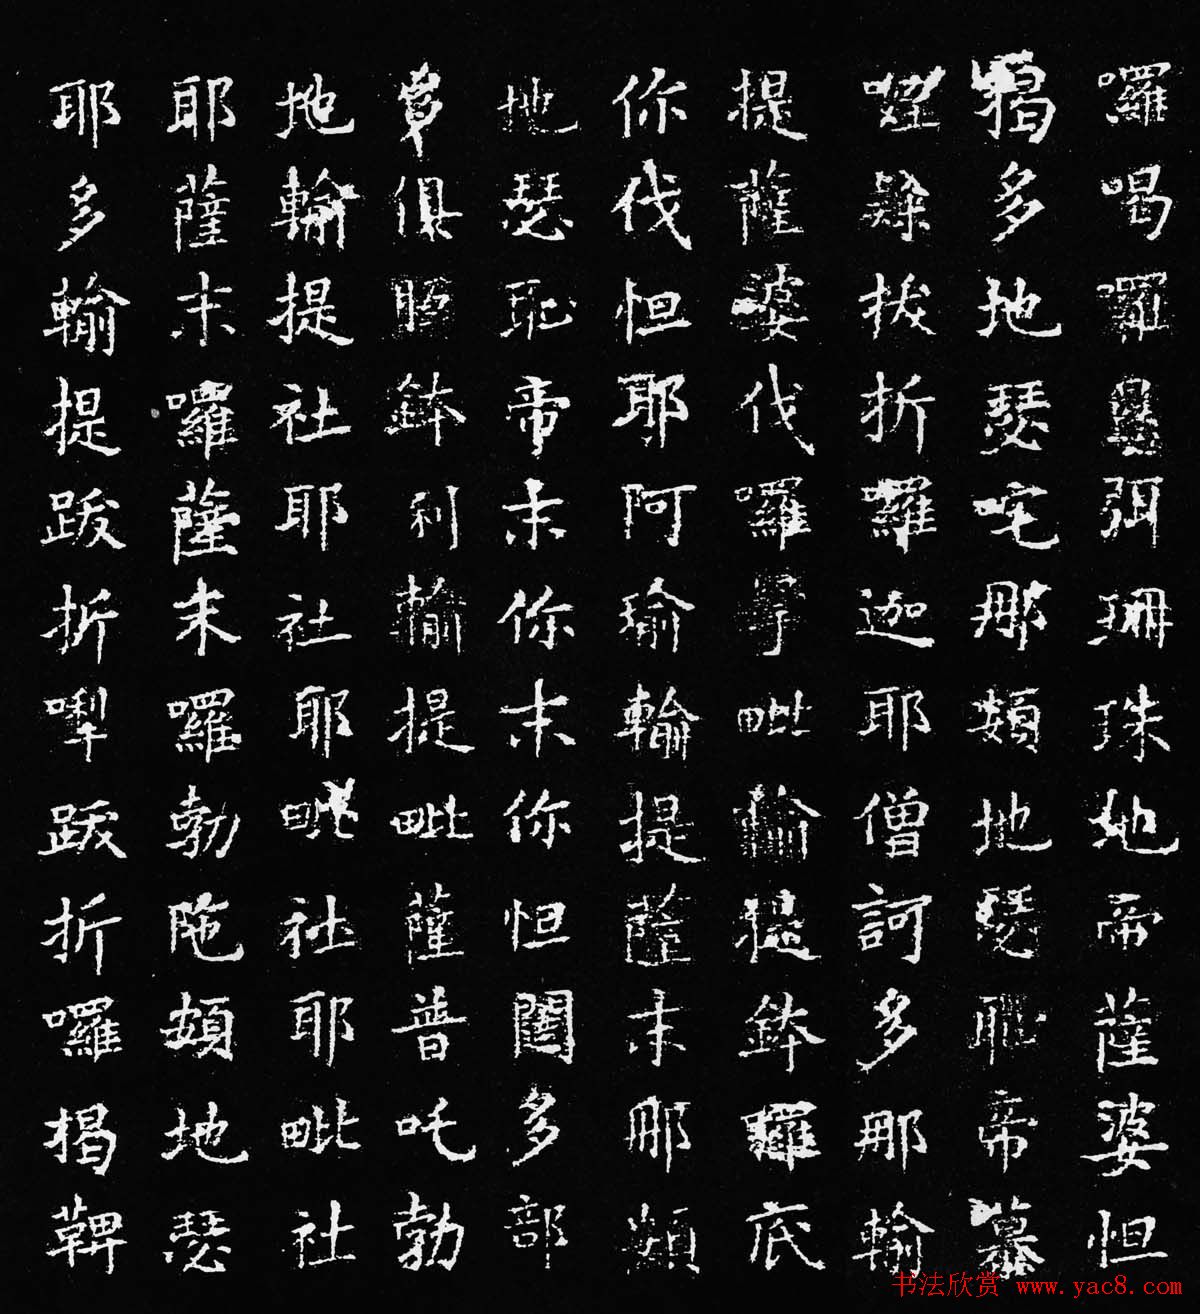 囉喝囉弭珊珠她帝薩婆怛
揭多地瑟咤那頞地瑟耻帝慕
拔折囉迦耶僧訶多那輸
提薩婆伐囉拏毗輸提鉢囉底
你伐怛耶阿瑜輸提薩末那頞
地瑟耻帝末你末你怛闥多部
俱胝鉢利輸提毗薩普吒勃
地輸提社耶社耶毗社耶毗社
耶薩末囉薩末囉勃陁頞地瑟
耶多輸提跋折跋折囉揭鞞
书法欣赏 www.yac8.com